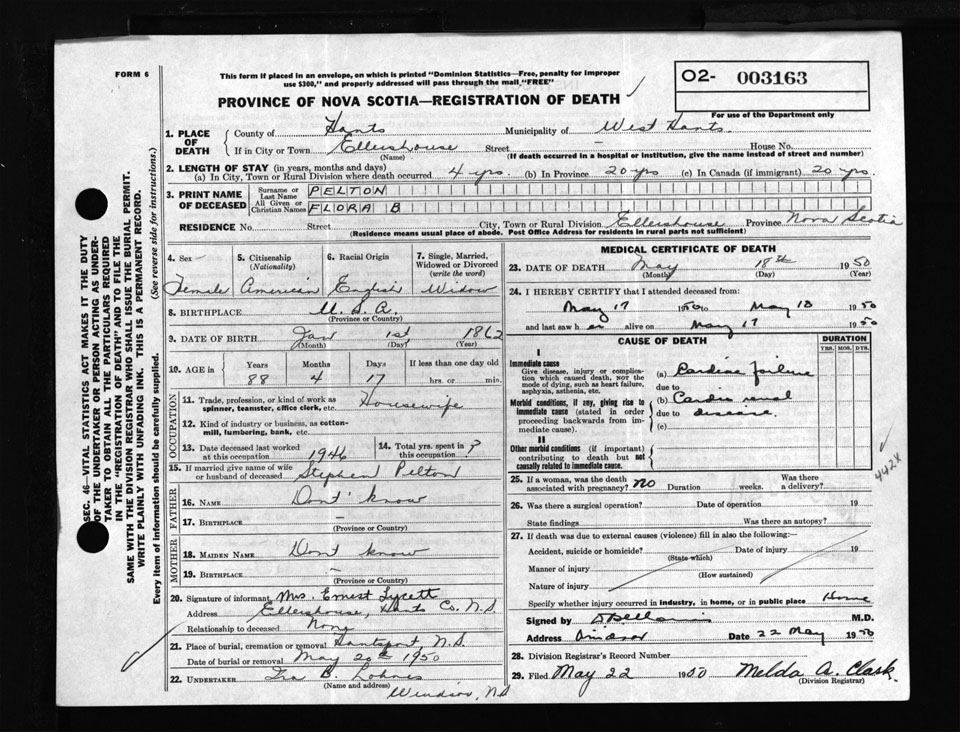 FORM 6
This form if placed in an envelope, on which is printed "Dominion Statistics—Free, penalty for improper
use $300," and properly addressed will pass through the mail "FREE"
PROVINCE OF NOVA SCOTIA—REGISTRATION OF DEATH
02- 003163
For use of the Department only
SEC. 46—VITAL STATISTICS ACT MAKES IT THE DUTY
OF THE UNDERTAKER OR PERSON ACTING AS UNDER-
TAKER TO OBTAIN ALL THE PARTICULARS REQUIRED
IN THE "REGISTRATION OF DEATH" AND TO FILE THE
SAME WITH THE DIVISION REGISTRAR WHO SHALL ISSUE THE BURIAL PERMIT.
WRITE PLAINLY WITH UNFADING INK. THIS IS A PERMANENT RECORD.
Every item of information should be carefully supplied. (See reverse side for instructions.)
1. PLACE OF DEATH
County of Hants Municipality of West Hants
If in City or Town Ellershouse Street — House No.
(Name) (If death occurred in a hospital or institution, give the name instead of street and number)
2. LENGTH OF STAY (in years, months and days)
(a) In City, Town or Rural Division where death occurred 4 yrs. (b) In Province 20 yrs (c) In Canada (if immigrant) 20 yrs.
3. PRINT NAME OF DECEASED
Surname or Last Name PELTON
All Given or Christian Names FLORA B
RESIDENCE No. Street City, Town or Rural Division Ellershouse Province Nova Scotia
(Residence means usual place of abode. Post Office Address for residents in rural parts not sufficient)
4. Sex 5. Citizenship (Nationality) 6. Racial Origin 7. Single, Married, Widowed or Divorced (write the word)
Female American English Widow
8. BIRTHPLACE U.S.A.
(Province or Country)
9. DATE OF BIRTH Jan 1st 1862
(Month) (Day) (Year)
10. AGE in Years Months Days If less than one day old
88 4 17 hrs. or min.
OCCUPATION
11. Trade, profession, or kind of work as spinner, teamster, office clerk, etc. Housewife
12. Kind of industry or business, as cotton-mill, lumbering, bank, etc.
13. Date deceased last worked at this occupation 1946
14. Total yrs. spent in this occupation ?
15. If married give name of wife or husband of deceased Stephen Pelton
FATHER
16. NAME Dont know
17. BIRTHPLACE —
(Province or Country)
MOTHER
18. MAIDEN NAME Dont know
19. BIRTHPLACE —
(Province or Country)
20. Signature of informant Mrs. Ernest Lycett
Address Ellershouse, Hants Co. N.S.
Relationship to deceased None
21. Place of burial, cremation or removal Hantsport, N.S.
Date of burial or removal May 20th 1950
22. UNDERTAKER Ira B. Lohnes
(Name and address) Windsor, N.S
MEDICAL CERTIFICATE OF DEATH
23. DATE OF DEATH May 18th 1950
(Month) (Day) (Year)
24. I HEREBY CERTIFY that I attended deceased from:
May 17 1950 to May 18 1950
and last saw her alive on May 17 1950
CAUSE OF DEATH DURATION
YRS. MOS. DYS.
I
Immediate cause
Give disease, injury or complication which caused death, NOT the mode of dying, such as heart failure, asphyxia, asthenia, etc.
(a) Cardiac failure
due to
Morbid conditions, if any, giving rise to immediate cause (stated in order proceeding backwards from immediate cause).
(b) Cardio renal
due to disease.
(c)
II
Other morbid conditions (if important) contributing to death but not causally related to immediate cause.
442X
25. If a woman, was the death associated with pregnancy? no Duration weeks. Was there a delivery?
26. Was there a surgical operation? Date of operation 19
State findings Was there an autopsy?
27. If death was due to external causes (violence) fill in also the following:—
Accident, suicide or homicide? Date of injury 19
(State which)
Manner of injury
(How sustained)
Nature of injury
Specify whether injury occurred in industry, in home, or in public place Home
Signed by M.D.
Address Windsor Date 22 May 1950
28. Division Registrar's Record Number
29. Filed May 22 1950 Melda A. Clark.
(Division Registrar)